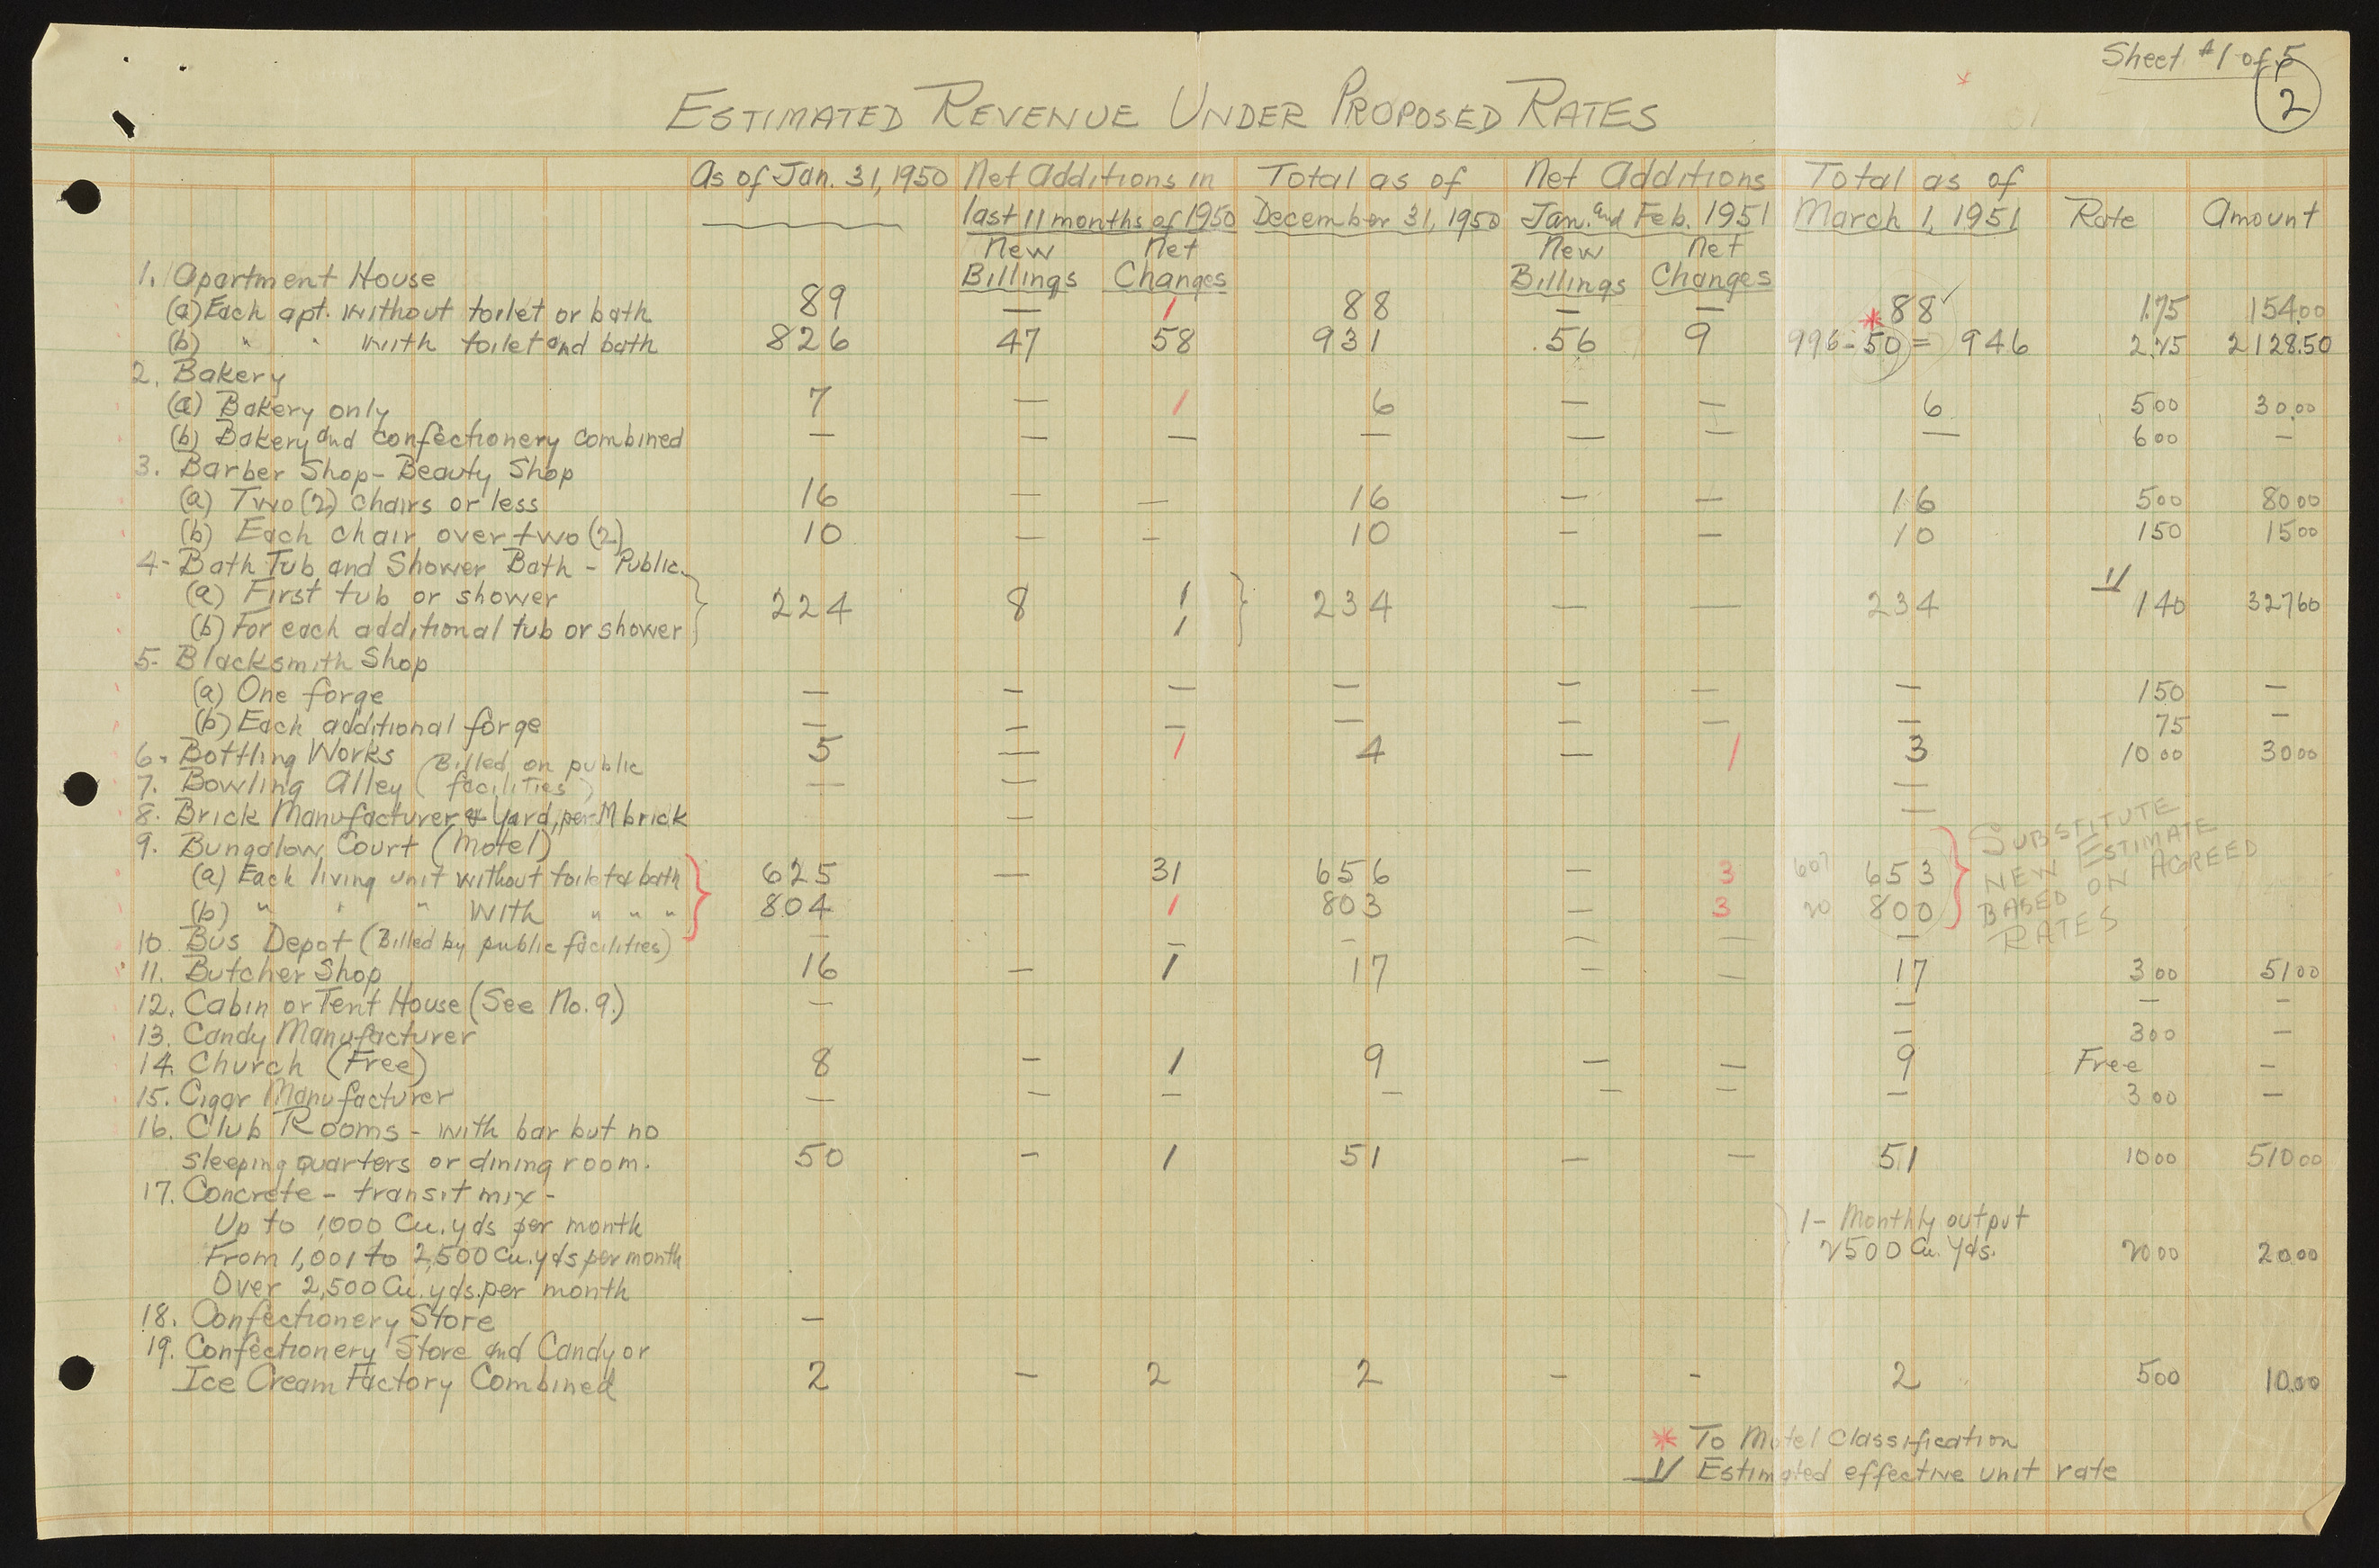 Sheet #1 of 5
2
ESTIMATED REVENUE UNDER PROPOSED RATES
As of Jan. 31, 1950 Net Additions in Total as of Net Additions Total as of
last 11 months of 1950 December 31, 1950 Jan. and Feb. 1951 March 1, 1951 Rate Amount
New Net New Net
Billings Changes Billings Changes
1. Apartment House
(a) Each apt. without toilet or bath 89 — 1 88 — — 88 ✓ 1.75 154.00
(b) " " with toilet and bath 826 47 58 931 56 9 * 996 - 50 = 946 2.25 2128.50
2. Bakery
(a) Bakery only 7 — 1 6 — — 6 5 00 30.00
(b) Bakery and confectionery combined — — — — — — — 6 00 —
3. Barber Shop - Beauty Shop
(a) Two (2) chairs or less 16 — — 16 — — 16 5 00 80 00
(b) Each chair over two (2) 10 — — 10 — — 10 1 50 15 00
4- Bath Tub and Shower Bath - Public.
(a) First tub or shower 224 8 1 234 — — 234 1/ 1 40 327 60
(b) For each additional tub or shower 1
5- Blacksmith Shop
(a) One forge — — — — — — — 1 50 —
(b) Each additional forge — — — — — — — 75 —
6. Bottling Works 5 — 1 4 — 1 3 10 00 30 00
7. Bowling Alley (Billed on public facilities) — — —
8. Brick Manufacturer & Yard, per M brick — —
9. Bungalow Court (Motel)
(a) Each living unit without toilet & bath 625 — 31 656 — 3 607 653
(b) " " " With " " " 804 1 803 — 3 20 800
SUBSTITUTE
NEW ESTIMATE
BASED ON AGREED
RATES
10. Bus Depot (Billed by public facilities) — — — — — —
11. Butcher Shop 16 — 1 17 — — 17 3 00 51 00
12. Cabin or Tent House (See No. 9.) — — — —
13. Candy Manufacturer — 3 00 —
14. Church (Free) 8 — 1 9 — — 9 Free —
15. Cigar Manufacturer — — — — — — — 3 00 —
16. Club Rooms - with bar but no
sleeping quarters or dining room. 50 — 1 51 — — 51 10 00 510 00
17. Concrete - transit mix -
Up to 1,000 Cu. yds per month 1 - Monthly output
From 1,001 to 2,500 Cu. yds per month 2500 Cu. Yds. 20 00 20.00
Over 2,500 Cu. yds. per month
18. Confectionery Store —
19. Confectionery Store and Candy or
Ice Cream Factory Combined 2 — 2 2 — - 2 5 00 10.00
* To Motel Classification
1/ Estimated effective unit rate